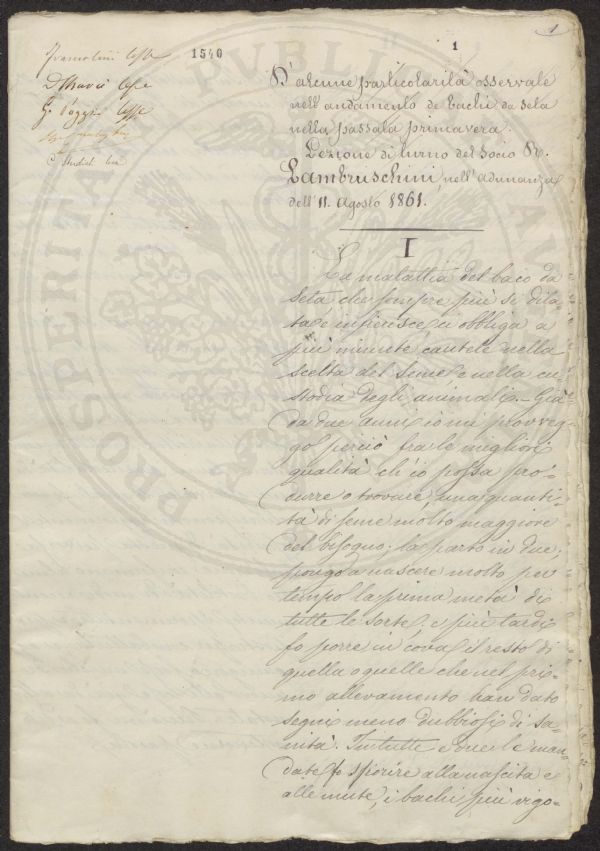 1
1
1540
lesse
D. lesse
G. lesse
D'alcune particolarità osservate
nell'andamento de' bachi da seta
nella passata primavera.
Lezione di turno del Socio R.
Lambruschini, nell'adunanza
dell'11. Agosto 1861.
I
La malattia del baco da
seta che sempre più si dila-
ta e infierisce, ci obbliga a
più minute cautele nella
scelta del seme e nella cu-
stodia degli animali. Già
da due anni io mi provveg-
go perciò fra le migliori
qualità ch'io possa pro-
durre o trovare, una quanti-
tà di seme molto maggiore
del bisogno; la parto in due;
pongo a nascere molto per
tempo la prima metà di
tutte le sorte; e più tardi
fo porre in cova il resto di
quella o quelle che nel pri-
mo allevamento han dato
segni meno dubbiosi di sa-
nità. In tutte e due le man-
date fo sfiorire alla nascita e
alle mute, i bachi più vigo-
PROSPERITATI PUBLICAE AU